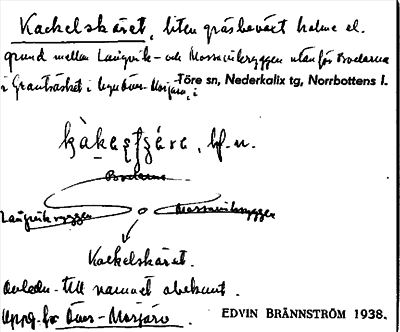 Kackelskäret, liten gräsbeväxt holme el.
grund mellan Långvik- och Massaviksryggen utanför Bodarna
i Granträsket i byn Över-Morjärv, i Töre sn, Nederkalix tg, Norrbottens l.
bf. n.
Bodarna
Långvikryggen Massaviksryggen
Kackelskäret.
Anledn. till namnet obekant.
Uppg. fr. Över-Morjärv. EDVIN BRÄNNSTRÖM 1938.